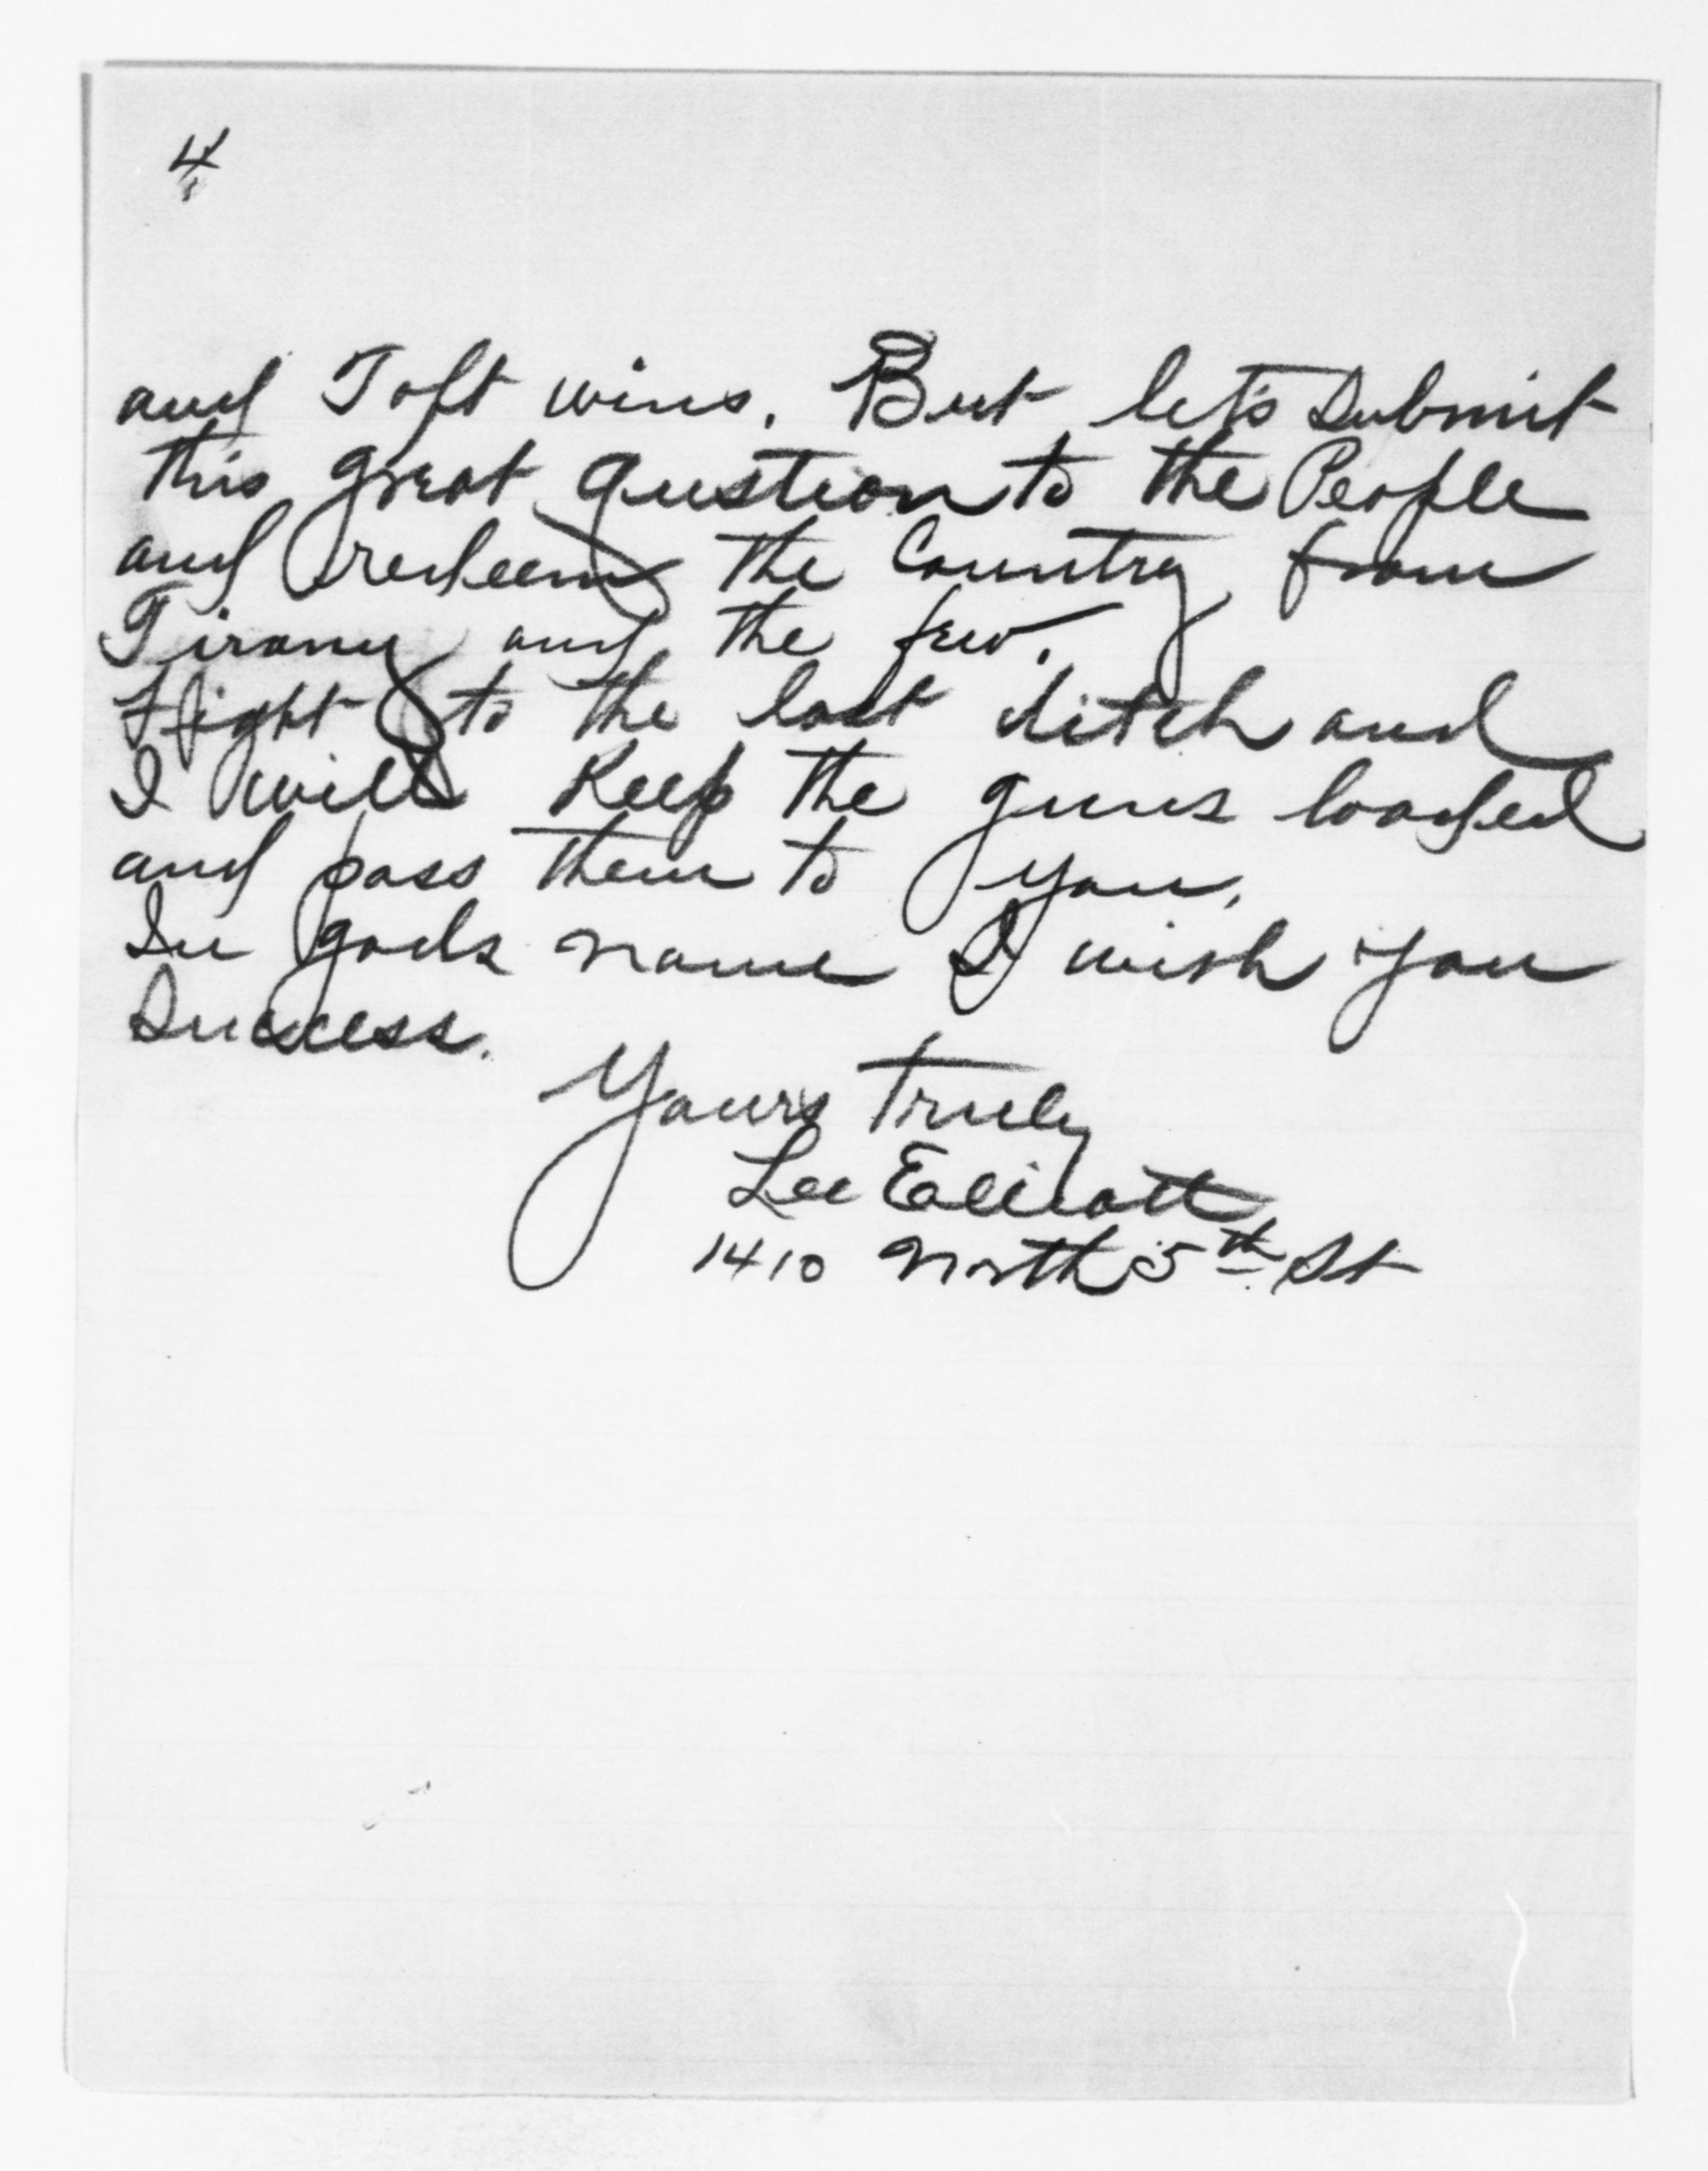 4
and Taft wins. But let's submit
this great question to the People
and redeem the Country from
Tirany and the few.
Fight to the last ditch and
I will Keep the guns loaded
and pass them to you.
In gods name I wish you
Success.
Yours truly
Lee
1410 North 5th St